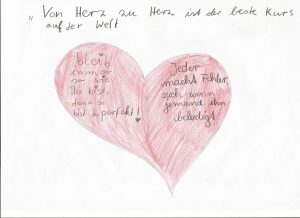 „Von Herz zu Herz ist der beste Kurs
auf der Welt
bleib
immer
so wie
du bist,
denn so
bist du perfekt!
Jeder
macht Fehler,
auch wenn
jemand ihn
beleidigt